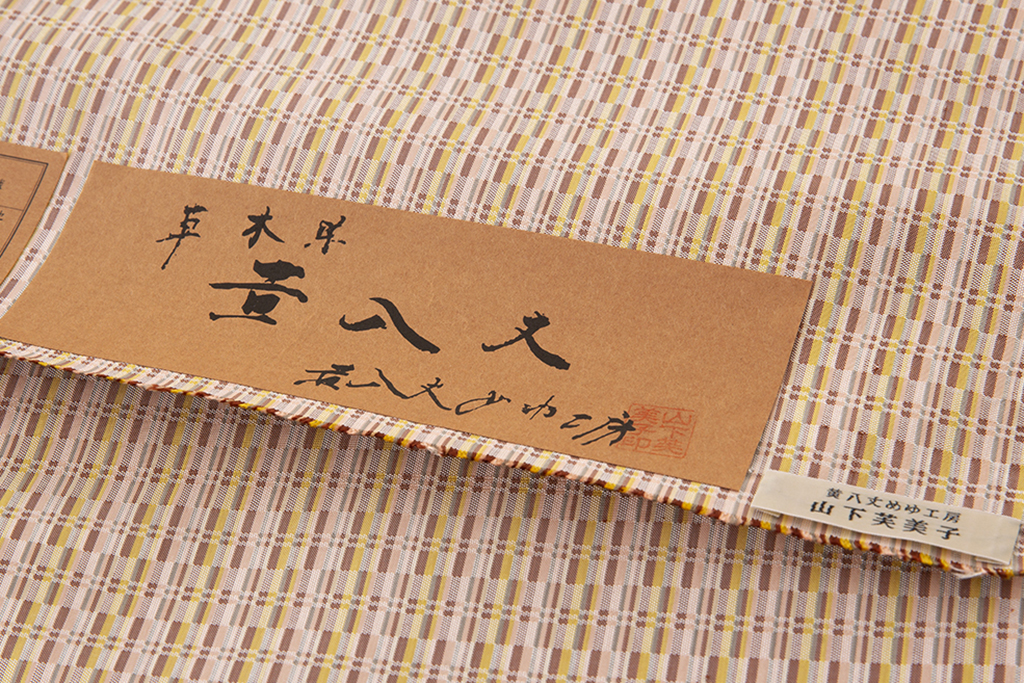 草木染
黄八丈
黄八丈めゆ工房
山下芙美子印
黄八丈めゆ工房
山下芙美子